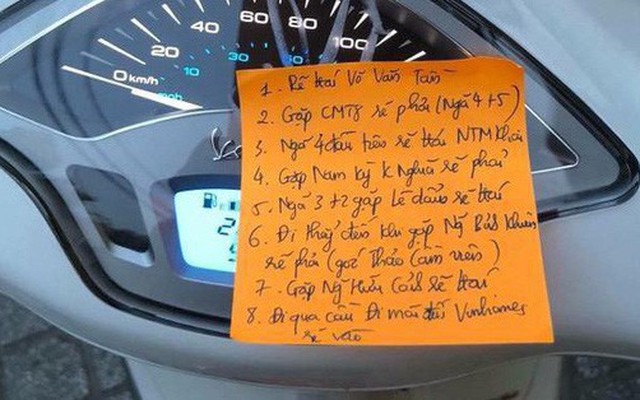 20 40 60 80 100
0 km/h
10 30 50
mph
1. Rẽ trái Võ Văn Tần
2. Gặp CMT8 rẽ phải (Ngã 4+5)
3. Ngã 4 đầu tiên rẽ trái NTMKhai
4. Gặp Nam kỳ K Nghĩa rẽ phải
5. Ngã 3+2 gặp Lê Duẩn rẽ trái
6. Đi thẳng đến khi gặp Ng Bỉnh Khiêm
rẽ phải (góc Thảo Cầm viên)
7. Gặp Ng Hữu Cảnh rẽ trái
8. Đi qua cầu Đi mãi đến Vinhomes
rẽ vào